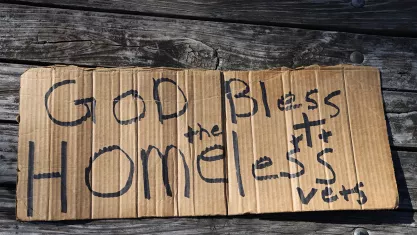 GOD Bless
the
HOMeless
vets